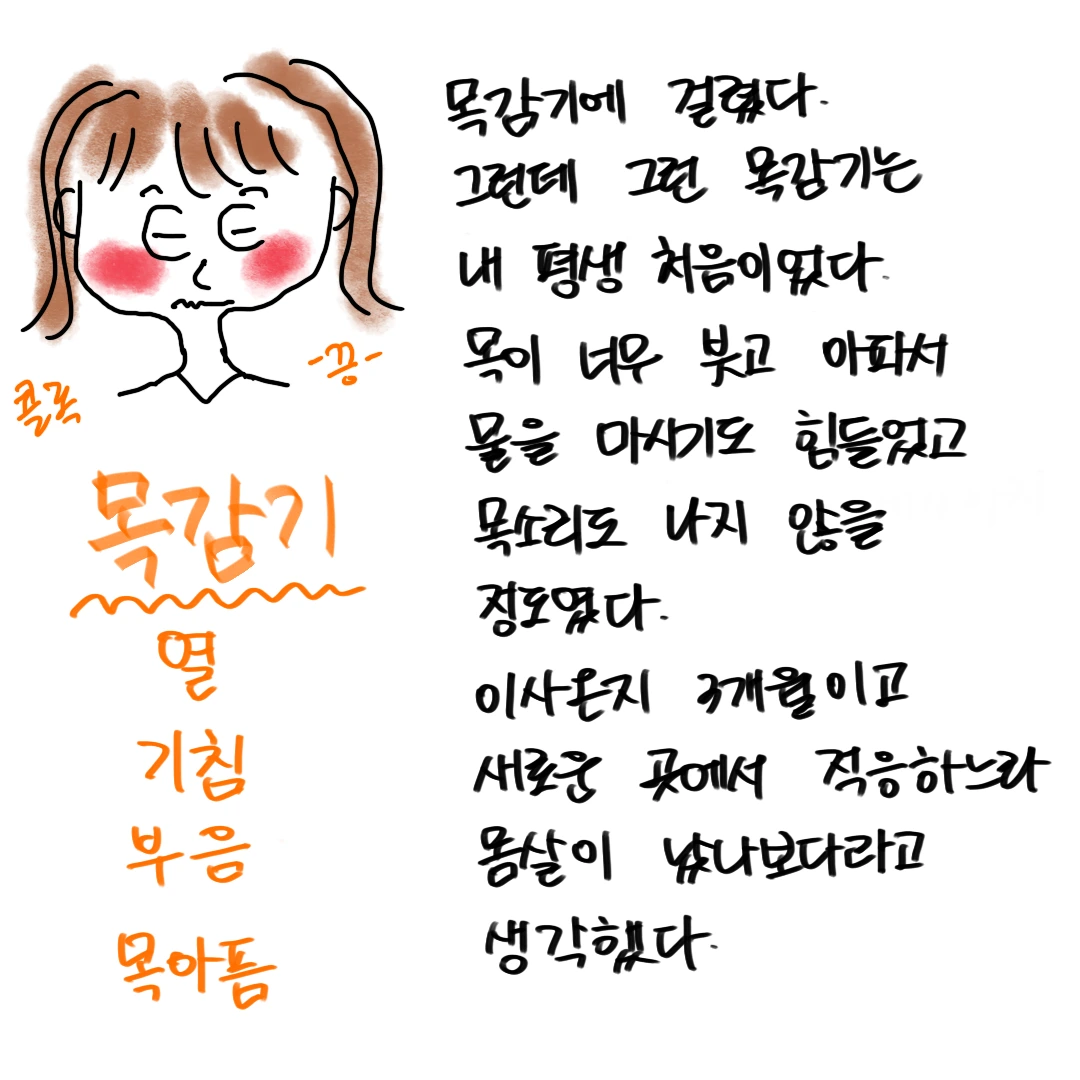 목감기에 걸렸다.
그런데 그런 목감기는
내 평생 처음이었다.
목이 너무 붓고 아파서
물을 마시기도 힘들었고
목소리도 나지 않을
정도였다.
이사온지 3개월이고
새로운 곳에서 적응하느라
몸살이 났나보다라고
생각했다.
콜록
-끙-
목감기
열
기침
부음
목아픔